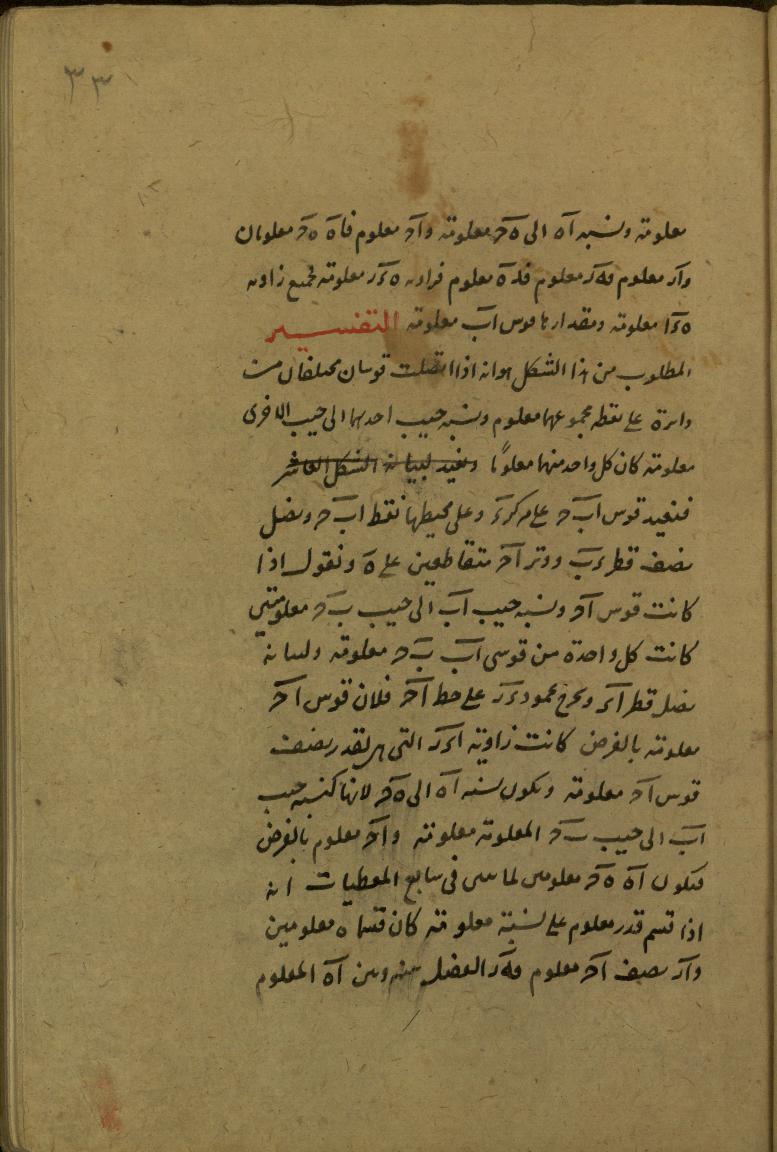 ٣٣
معلومة ونسبه اه الى ه ح معلومة واح معلوم فاه ه ح معلومان
وار معلوم فه ر معلوم فده معلوم فزاويه ه ر معلومة فجميع زاويه
ه ا معلومة ومقدارها قوس اب معلومة التفسير
المطلوب من هذا الشكل هو انه اذا اتصلت قوسان مختلفتان من
دائرة على نقطه مجموعهما معلوم ونسبه جيب احدهما الى جيب الاخرى
معلومة كان كل واحد منهما معلومًا ونعيد لبيانه الشكل العاشر
فنعيد قوس اب ح على مركز د وعلى محيطها نقط ا ب ح ونصل
نصف قطر د ب ووتر اح متقاطعين على ه ونقول اذا
كانت قوس اح ونسبه جيب اب الى جيب ب ح معلومتي
كانت كل واحدة من قوسي اب ب ح معلومة ولبيانه
نصل قطر اد ونخرج عمود د ر على خط اح فلان قوس اح
معلومة بالفرض كانت زاوية ا د ر التي هي بقدر نصف
قوس اح معلومة ويكون نسبه اه الى ه ح لانها كنسبه جيب
اب الى جيب ب ح المعلومة معلومة واح معلوم بالفرض
فيكون اه ه ح معلومين لما تبين في سابع المعطيات انه
اذا قسم قدر معلوم على نسبة معلومة كان قسماه معلومين
وار نصف اح معلوم فه ر الفضل بينه وبين اه المعلوم